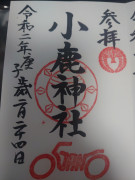 参拝
小鹿神社
令和二年庚子歳二月二十四日